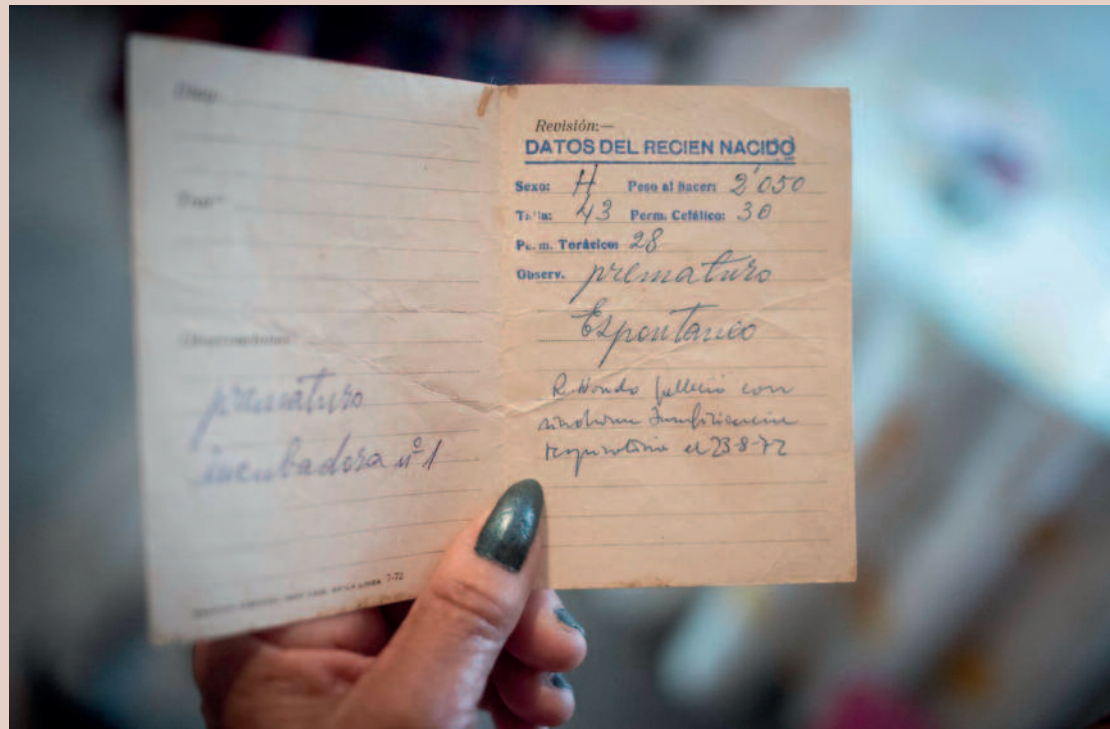 Observaciones:
prematuro
incubadora nº 1
LA LINEA 7-72
Revisión:—
DATOS DEL RECIEN NACIDO
Sexo: H Peso al hacer: 2'050
Talla: 43 Perm. Cefálico: 30
Perm. Torácico: 28
Observ. prematuro
Espontaneo
falleció con
sindrome Insuficiencia
respiratoria el 23-8-72